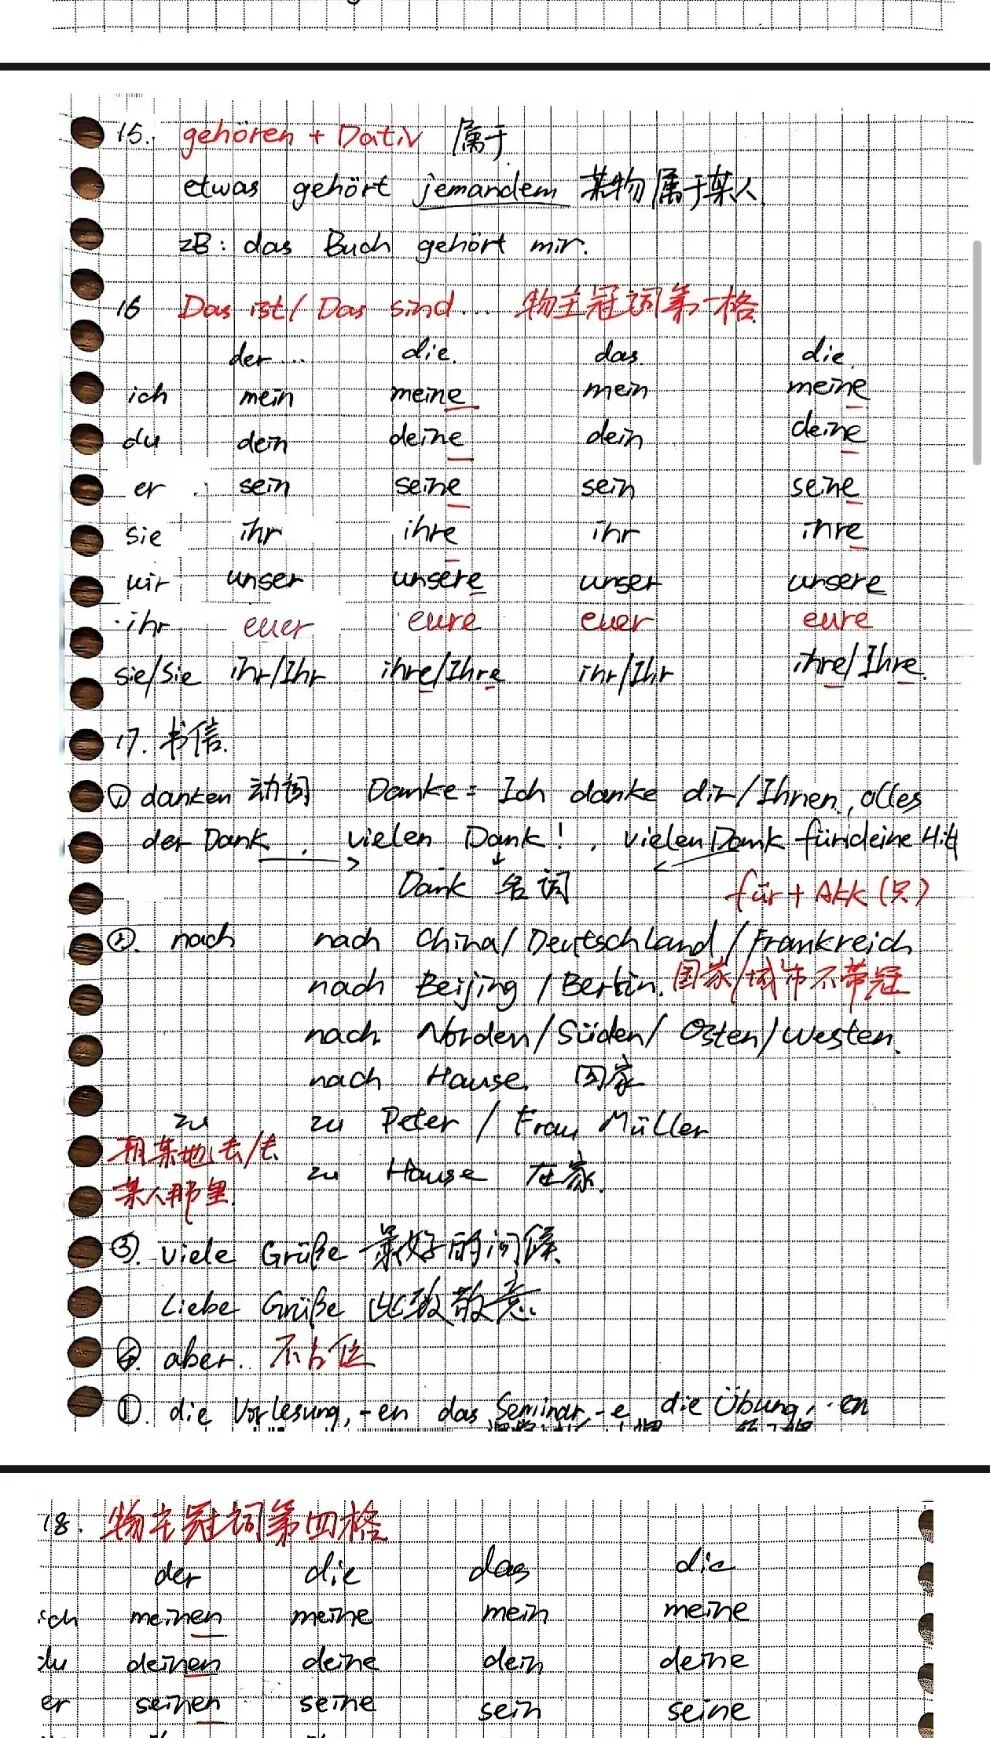 15. gehören + Dativ 属于
etwas gehört jemandem 某物属于某人
zB: das Buch gehört mir.
16 Das ist/ Das sind... 物主冠词第一格
der ... die. das die
ich mein meine mein meine
du dein deine dein deine
er sein seine sein seine
sie ihr ihre ihr ihre
wir unser unsere unser unsere
ihr euer eure euer eure
sie/Sie ihr/Ihr ihre/Ihre ihr/Ihr ihre/Ihre.
17. 书信.
① danken 动词 Danke = Ich danke dir/Ihnen, alles
der Dank. vielen Dank! vielen Dank für deine
Dank 名词 für + AKK (只)
②. nach nach China/ Deutschland / Frankreich
nach Beijing / Berlin. 国家/城市不带冠
nach Norden/Süden/ Osten/Westen.
nach Hause. 回家
zu zu Peter / Frau Müller
某地去/去
zu Hause 在家.
某人那里.
③. viele Grüße 最好的问候.
Liebe Grüße 此致敬意.
④. aber. 不占位
①. die Vorlesung, -en das Seminar, -e die Übung, -en
18. 物主冠词第四格
der die das die
ich meinen meine mein meine
du deinen deine dein deine
er seinen seine sein seine